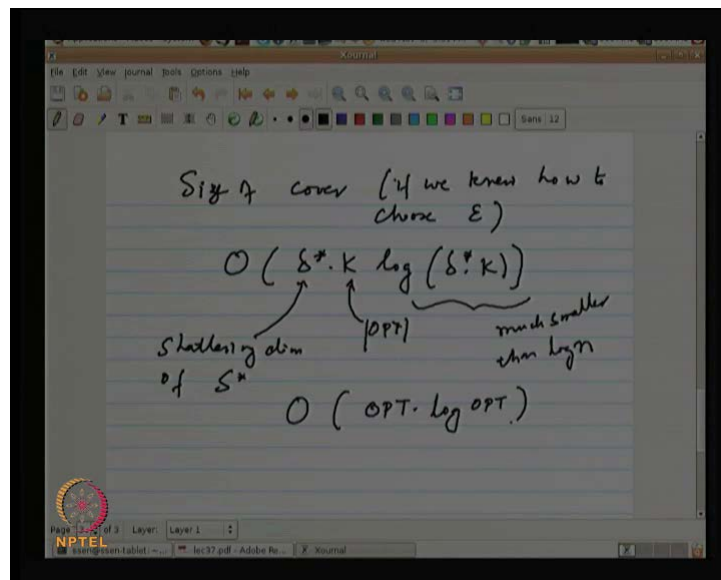 Xournal
File Edit View Journal Tools Options Help
Sans 12
Size of cover (if we knew how to
choose ε)
O ( δ*. K log (δ*. K))
Shattering dim
of S*
|OPT|
much smaller
than log n
O ( OPT. log OPT.)
Page 3 of 3 Layer: Layer 1
NPTEL
ssen@ssen-tablet: ~... lec37.pdf - Adobe Re... Xournal